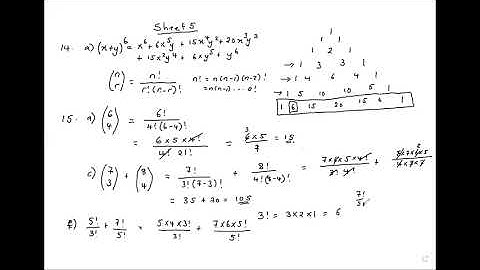 Sheet 5
14. a) (x+y)^6 = x^6 + 6x^5y + 15x^4y^2 + 20x^3y^3
+ 15x^2y^4 + 6xy^5 + y^6
(n r) = n! / r!(n-r)!
n! = n(n-1)(n-2)!
= n(n-1)...0!
1
1 1
1 2 1
→ 1 3 3 1
→ 1 4 6 4 1
→ 1 5 10 10 5 1
1 6 15 20 15 6 1
15. a) (6 4) = 6! / 4!(6-4)!
= 6 x 5 x 4! / 4! 2! = 6 x 5 / 2 = 15
c) (7 3) + (8 4) = 7! / 3!(7-3)! + 8! / 4!(8-4)! = 7 x 6 x 5 x 4! / 3! 4! +
= 35 + 70 = 105
f) 5! / 3! + 7! / 5! = 5 x 4 x 3! / 3! + 7 x 6 x 5! / 5!
3! = 3 x 2 x 1 = 6
7!